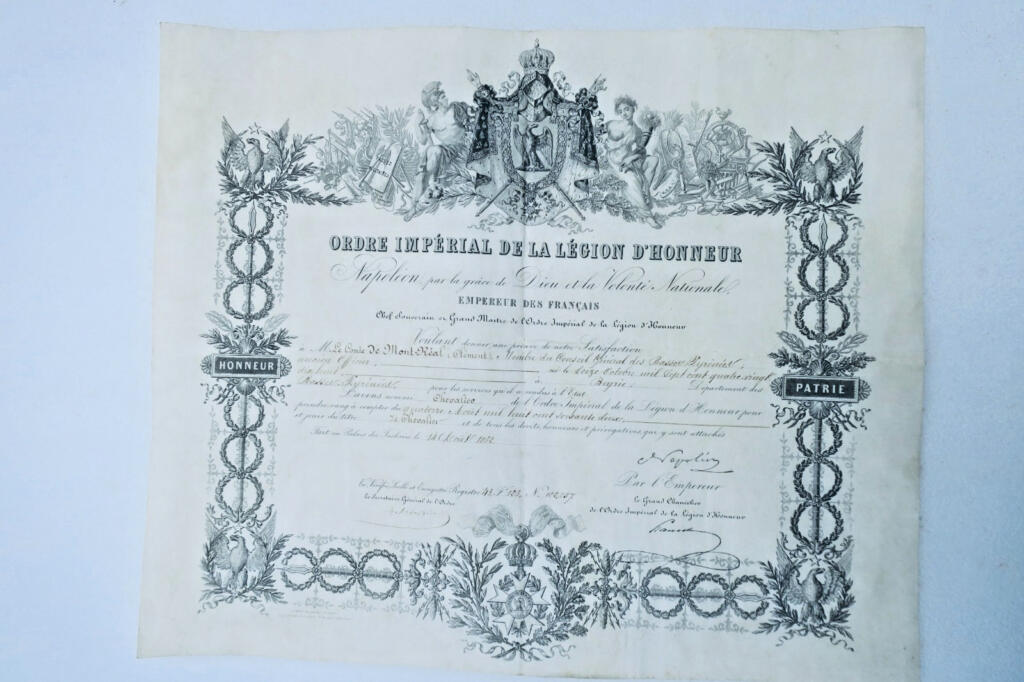 ORDRE IMPÉRIAL DE LA LÉGION D'HONNEUR
Napoléon, par la grâce de Dieu et la Volonté Nationale,
EMPEREUR DES FRANÇAIS
Chef Souverain et Grand Maître de l'Ordre Impérial de la Légion d'Honneur
Voulant donner une preuve de notre Satisfaction
à M. Le Comte de Mont-Réal, (Clément), Membre du Conseil Général des Basses Pyrénées,
ancien Officier, né le Seize Octobre mil sept cent quatre vingt
dix huit à Département des
Basses Pyrénées pour les services qu'il a rendus à l'Etat
L'avons nommé Chevalier de l'Ordre Impérial de la Légion d'Honneur pour
prendre rang à compter du quatorze Août mil huit cent soixante deux,
et jouir du titre de Chevalier et de tous les droits, honneurs et prérogatives qui y sont attachés
Fait au Palais des Tuileries le 14 Août
HONNEUR
PATRIE
Napoléon
Vu, Vérifié, Scellé et Enregistré Registre
Le Secrétaire Général de l'Ordre
Par l'Empereur
Le Grand Chancelier
de l'Ordre Impérial de la Légion d'Honneur